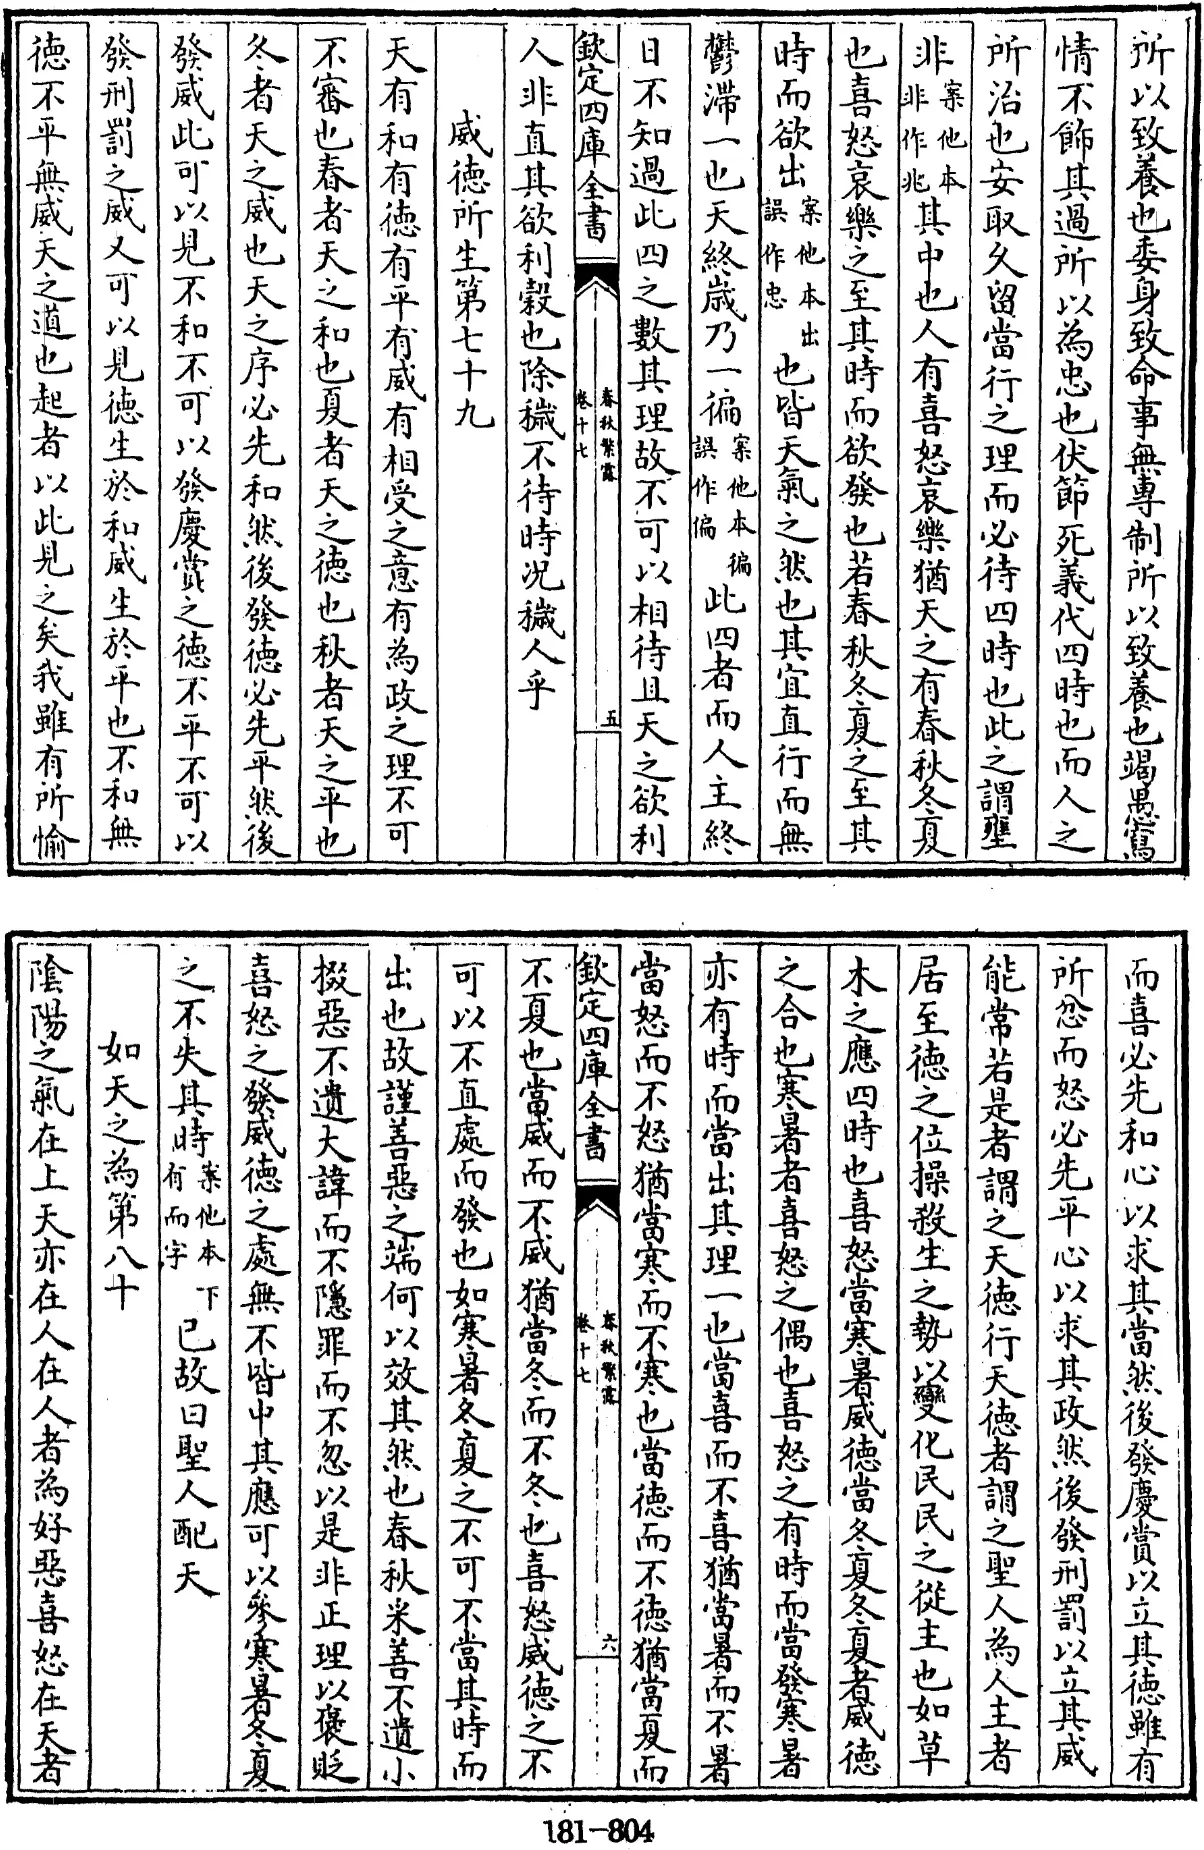 所以致養也委身致命事無專制所以致養也竭愚寫
情不飾其過所以為忠也伏節死義代四時也而人之
所治也安取久留當行之理而必待四時也此之謂壅
非案他本非作兆其中也人有喜怒哀樂猶天之有春秋冬夏
也喜怒哀樂之至其時而欲發也若春秋冬夏之至其
時而欲出案他本出誤作忠也皆天氣之然也其宜直行而無
鬱滯一也天終歲乃一徧案他本徧誤作偏此四者而人主終
日不知過此四之數其理故不可以相待且天之欲利
欽定四庫全書
春秋繁露
卷十七
五
人非直其欲利穀也除穢不待時况穢人乎
威德所生第七十九
天有和有德有平有威有相受之意有為政之理不可
不審也春者天之和也夏者天之德也秋者天之平也
冬者天之威也天之序必先和然後發德必先平然後
發威此可以見不和不可以發慶賞之德不平不可以
發刑罰之威又可以見德生於和威生於平也不和無
德不平無威天之道也起者以此見之矣我雖有所愉
而喜必先和心以求其當然後發慶賞以立其德雖有
所忿而怒必先平心以求其政然後發刑罰以立其威
能常若是者謂之天德行天德者謂之聖人為人主者
居至德之位操殺生之勢以變化民民之從主也如草
木之應四時也喜怒當寒暑威德當冬夏冬夏者威德
之合也寒暑者喜怒之偶也喜怒之有時而當發寒暑
亦有時而當出其理一也當喜而不喜猶當暑而不暑
當怒而不怒猶當寒而不寒也當德而不德猶當夏而
欽定四庫全書
春秋繁露
卷十七
六
不夏也當威而不威猶當冬而不冬也喜怒威德之不
可以不直處而發也如寒暑冬夏之不可不當其時而
出也故謹善惡之端何以效其然也春秋采善不遺小
掇惡不遺大諱而不隱罪而不忽以是非正理以褒貶
喜怒之發威德之處無不皆中其應可以參寒暑冬夏
之不失其時案他本下有而字已故曰聖人配天
如天之為第八十
陰陽之氣在上天亦在人在人者為好惡喜怒在天者
181-804